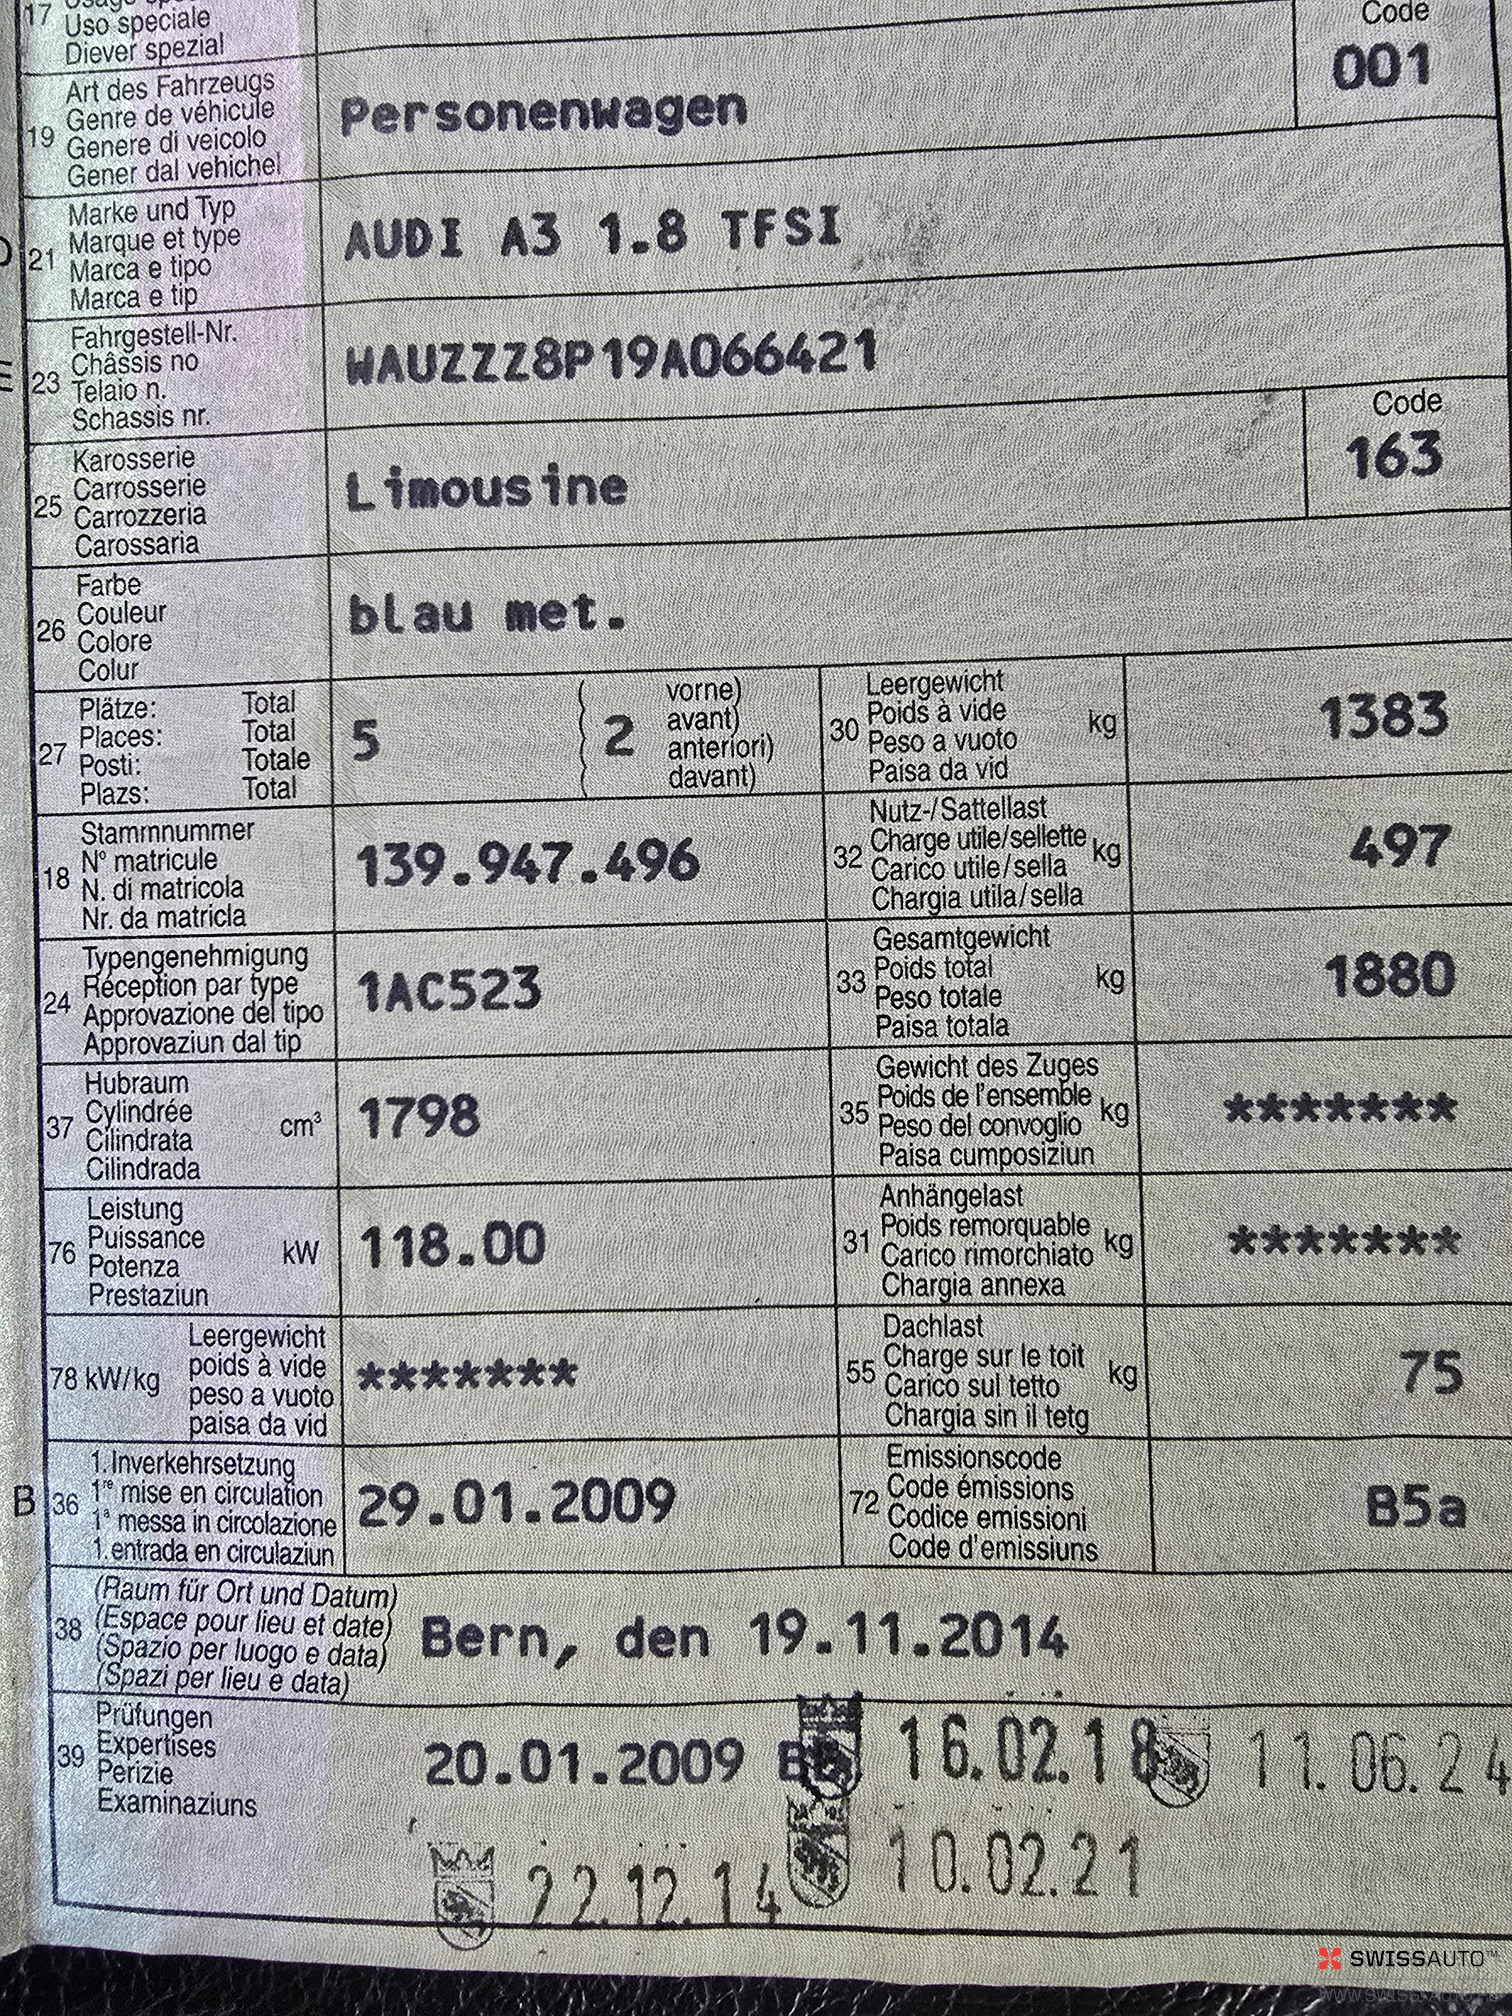 17
Uso speciale
Diever spezial
Code
001
19
Art des Fahrzeugs
Genre de véhicule
Genere di veicolo
Gener dal vehichel
Personenwagen
21
Marke und Typ
Marque et type
Marca e tipo
Marca e tip
AUDI A3 1.8 TFSI
23
Fahrgestell-Nr.
Châssis no
Telaio n.
Schassis nr.
WAUZZZ8P19A066421
25
Karosserie
Carrosserie
Carrozzeria
Carossaria
Limousine
Code
163
26
Farbe
Couleur
Colore
Colur
blau met.
27
Plätze: Total
Places: Total
Posti: Totale
Plazs: Total
5
2
vorne)
avant)
anteriori)
davant)
30
Leergewicht
Poids à vide
Peso a vuoto
Paisa da vid
kg
1383
18
Stammnummer
N° matricule
N. di matricola
Nr. da matricla
139.947.496
32
Nutz-/Sattellast
Charge utile/sellette
Carico utile/sella
Chargia utila/sella
kg
497
24
Typengenehmigung
Réception par type
Approvazione del tipo
Approvaziun dal tip
1AC523
33
Gesamtgewicht
Poids total
Peso totale
Paisa totala
kg
1880
37
Hubraum
Cylindrée
Cilindrata
Cilindrada
cm³
1798
35
Gewicht des Zuges
Poids de l'ensemble
Peso del convoglio
Paisa cumposiziun
kg
*******
76
Leistung
Puissance
Potenza
Prestaziun
kW
118.00
31
Anhängelast
Poids remorquable
Carico rimorchiato
Chargia annexa
kg
*******
78 kW/kg
Leergewicht
poids à vide
peso a vuoto
paisa da vid
*******
55
Dachlast
Charge sur le toit
Carico sul tetto
Chargia sin il tetg
kg
75
B
36
1.Inverkehrsetzung
1re mise en circulation
1a messa in circolazione
1.entrada en circulaziun
29.01.2009
72
Emissionscode
Code émissions
Codice emissioni
Code d'emissiuns
B5a
38
(Raum für Ort und Datum)
(Espace pour lieu et date)
(Spazio per luogo e data)
(Spazi per lieu e data)
Bern, den 19.11.2014
39
Prüfungen
Expertises
Perizie
Examinaziuns
20.01.2009
16.02.18
11.06.24
22.12.14
10.02.21
SWISSAUTO™